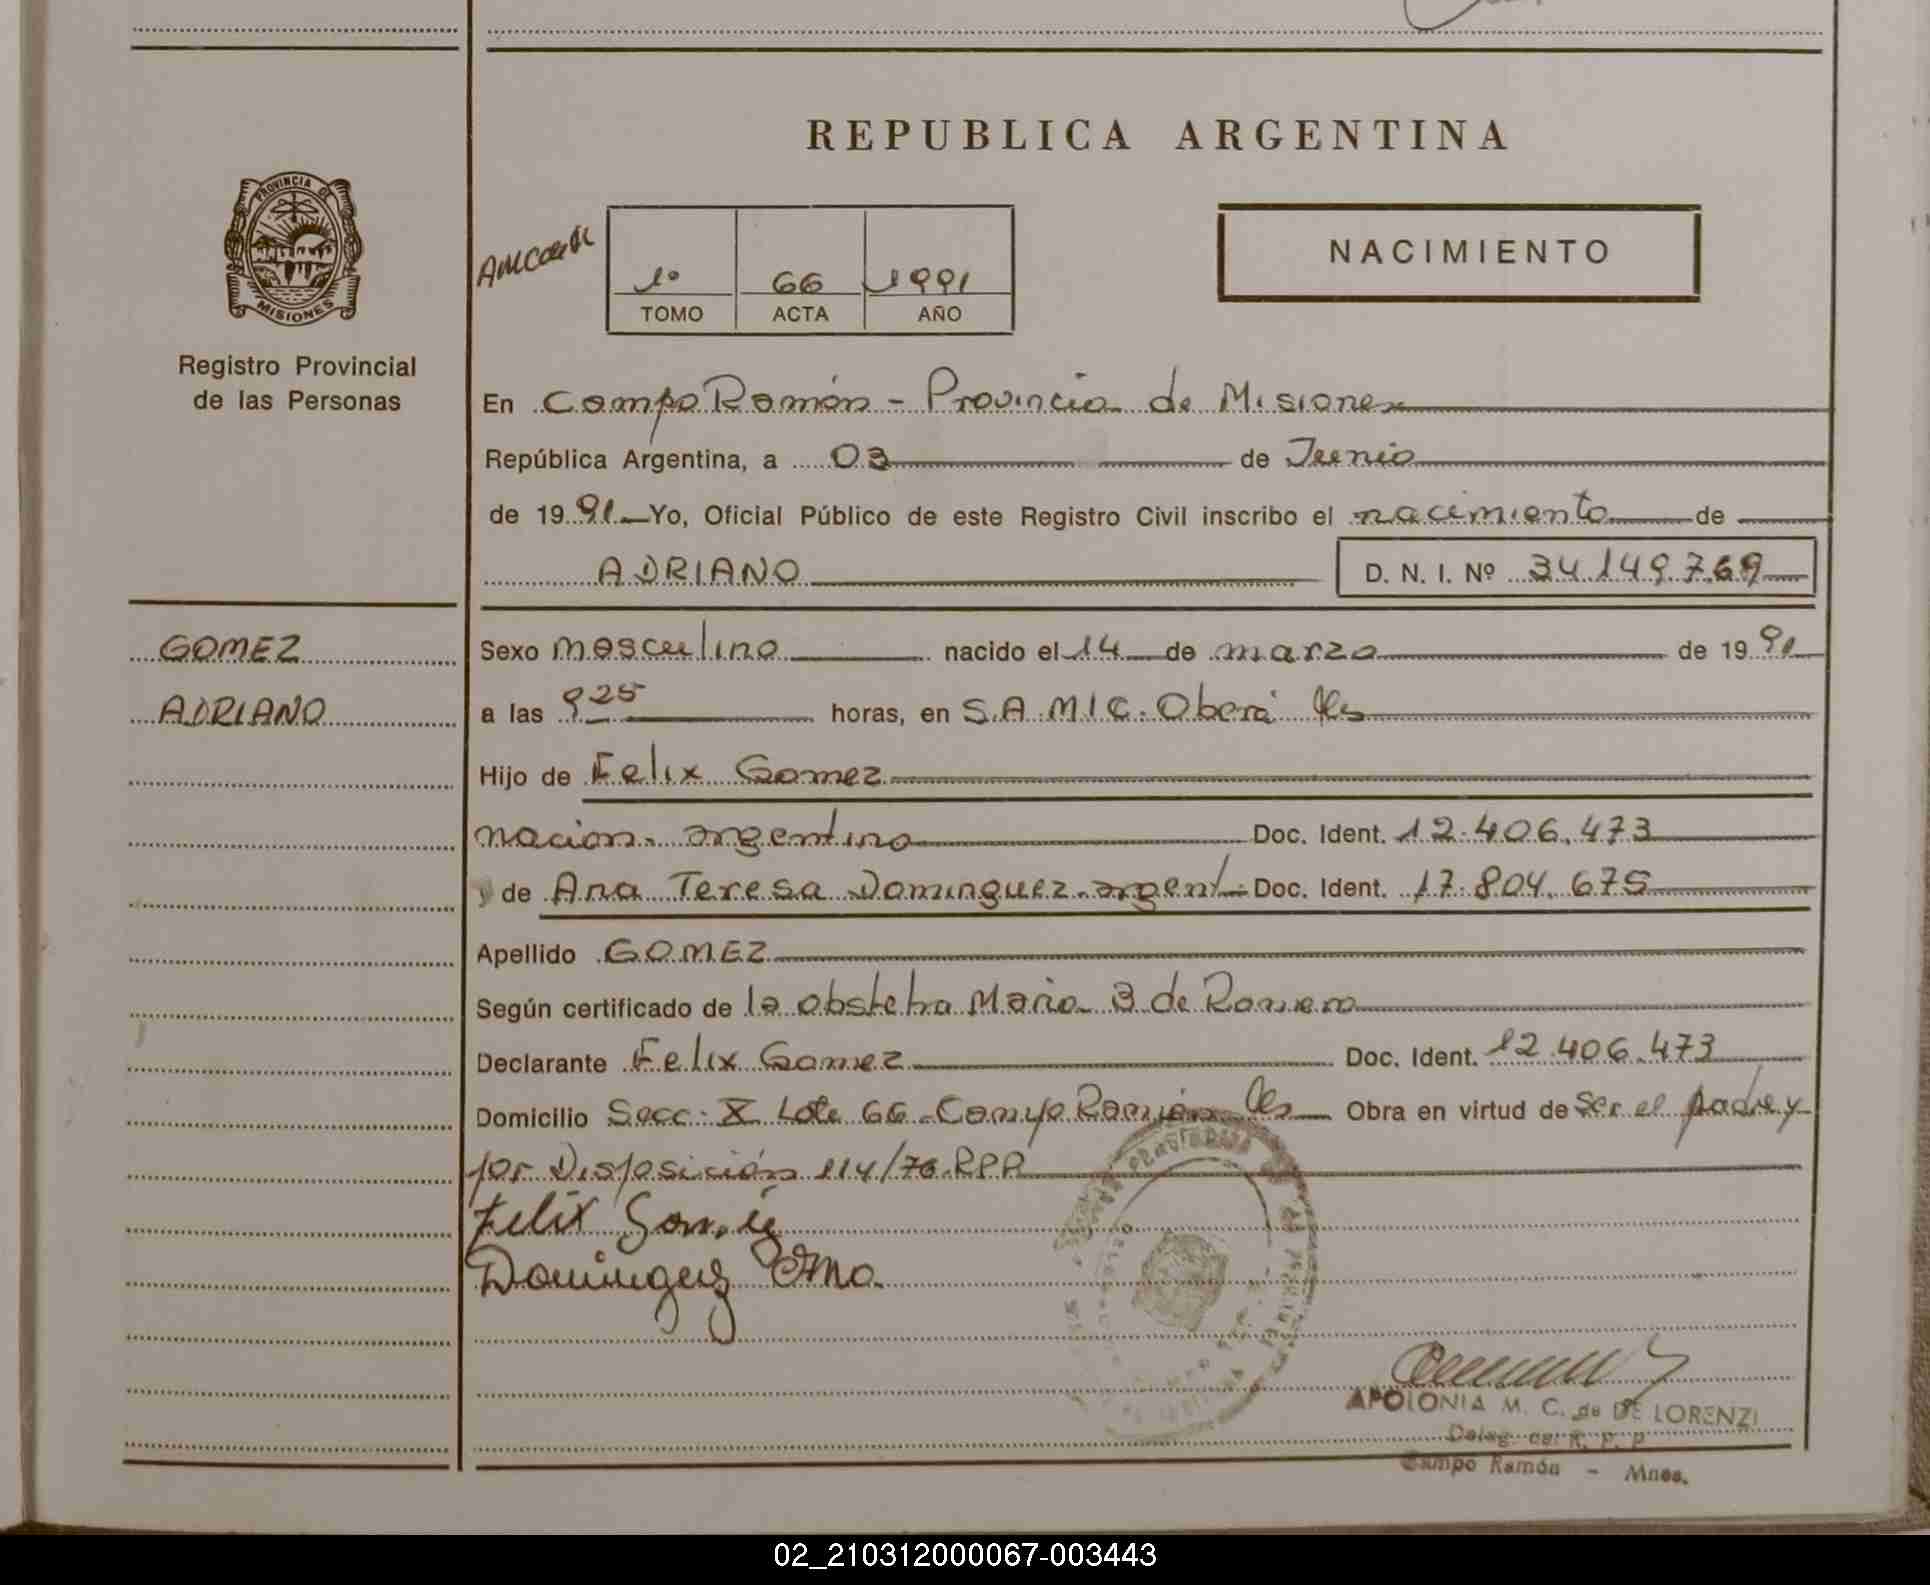 REPUBLICA ARGENTINA
PROVINCIA DE
MISIONES
Registro Provincial
de las Personas
1º 66 1991
TOMO ACTA AÑO
NACIMIENTO
En Campo Ramón - Provincia de Misiones
República Argentina, a 03 de Junio
de 1991 Yo, Oficial Público de este Registro Civil inscribo el nacimiento de
ADRIANO D. N. I. Nº 34.149.769
GOMEZ
ADRIANO
Sexo masculino nacido el 14 de marzo de 1991
a las 9 25 horas, en S.A.M.I.C. Oberá
Hijo de Felix Gomez
nacion. argentino Doc. Ident. 12.406.473
y de Ana Teresa Dominguez. argent. Doc. Ident. 17.804.675
Apellido GOMEZ
Según certificado de la obstetra Maria B de Romero
Declarante Felix Gomez Doc. Ident. 12.406.473
Domicilio Secc. X Lote 66 - Campo Ramón Obra en virtud de ser el padre y
por Disposición 114/76. R.P.P.
Felix Gomez
Dominguez Ana
APOLONIA M. C. de DE LORENZI
Deleg. del R. P. P.
Campo Ramón - Mnes.
02_210312000067-003443